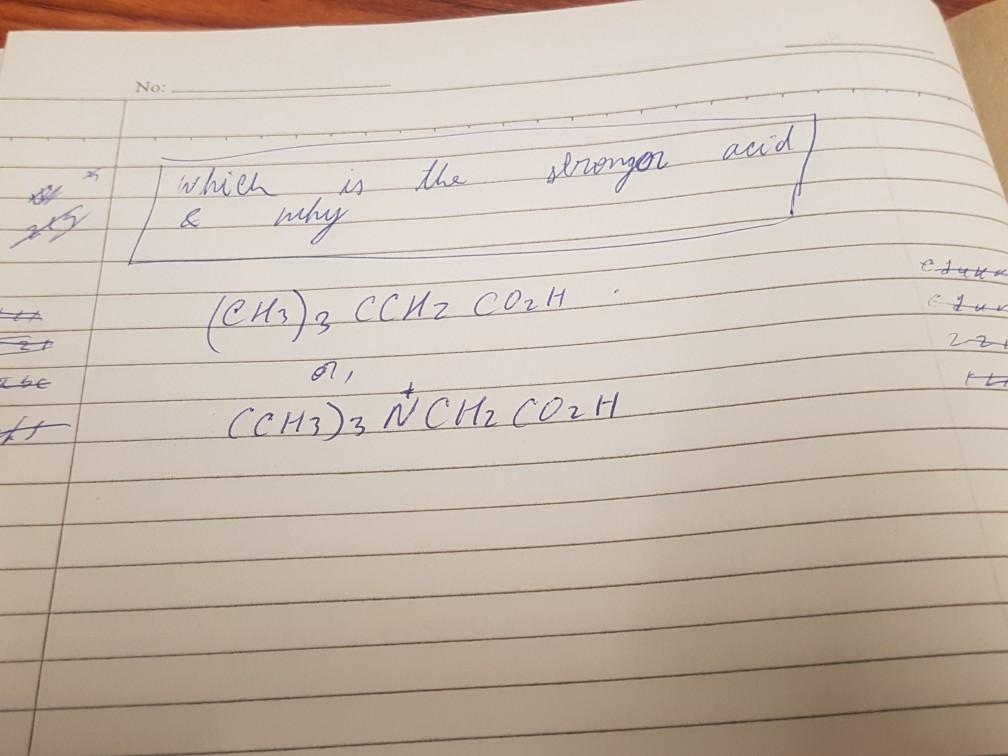 No:
which is the stronger acid
& why
(CH3)3 CCH2 CO2H
or,
(CH3)3 N+ CH2 CO2H
abc